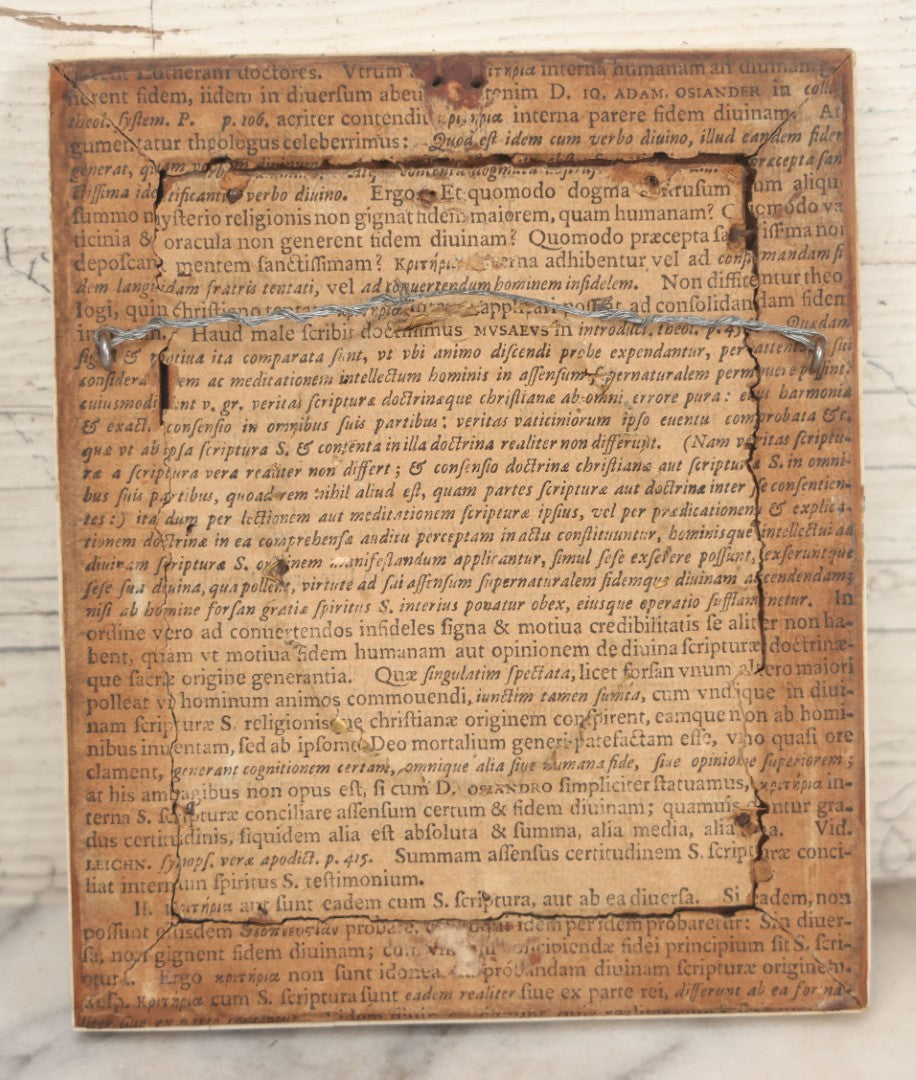 Lutherani doctores. Vtrum interna humanam an diuinam
nerent fidem, iidem in diuersum abeu D. IO. ADAM. OSIANDER in
theol. ſyſtem. P. p. 106. acriter contendi interna parere fidem diuinam. Ar
gumentatur theologus celeberrimus: Quod eſt idem cum verbo diuino, illud eandem fidem
generat, præcepta ſan
ctiſſima verbo diuino. Ergo Et quomodo dogma aliqu
ſummo myſterio religionis non gignat fidem maiorem, quam humanam? Quomodo va
ticinia & oracula non generent fidem diuinam? Quomodo præcepta noi
depoſcan mentem ſanctiſſimam? Κριτήρια adhibentur vel ad confirmandam fi
dem languidam fratris tentati, vel ad conuertendum hominem infidelem. Non diffitentur theo
logi, quin chriſtiano applicari ad conſolidandam fidem
Haud male ſcribit doctiſſimus MVSAEVS in introduct. theol. p. Quædam
& motiua ita comparata ſunt, vt vbi animo diſcendi probe expendantur, per ſui
conſidera em ac meditationem intellectum hominis in aſſenſum ſupernaturalem permouere poſſint:
cuiusmodi ſunt v. gr. veritas ſcripturæ doctrinæque chriſtianæ ab omni errore pura: eius harmonia
& exact. conſenſio in omnibus ſuis partibus: veritas vaticiniorum ipſo euentu comprobata &c.
quæ vt ab ipſa ſcriptura S. & contenta in illa doctrina realiter non differunt. (Nam veritas ſcriptu-
ræ a ſcriptura vera realiter non differt; & conſenſio doctrinæ chriſtianæ aut ſcripturæ S. in omni-
bus ſuis partibus, quoad rem nihil aliud eſt, quam partes ſcripturæ aut doctrinæ inter ſe conſentien-
tes:) ita dum per lectionem aut meditationem ſcripturæ ipſius, vel per prædicationem & explica-
tionem doctrinæ in ea comprehenſæ auditu perceptam in actu conſtituuntur, hominisque intellectui ad
diuinam ſcripturæ S. originem manifeſtandum applicantur, ſimul ſeſe exſerere poſſunt, exſeruntque
ſeſe ſua diuina, qua pollent, virtute ad ſui aſſenſum ſupernaturalem fidemque diuinam accendendam;
niſi ab homine forſan gratiæ ſpiritus S. interius ponatur obex, eiusque operatio ſufflaminetur. In
ordine vero ad conuertendos infideles ſigna & motiua credibilitatis ſe aliter non ha-
bent, quam vt motiua fidem humanam aut opinionem de diuina ſcripturæ doctrinæ-
que ſacræ origine generantia. Quæ ſingulatim ſpectata, licet forſan vnum altero maiori
polleat vi hominum animos commouendi, iunctim tamen ſumta, cum vndique in diui-
nam ſcripturæ S. religionisque chriſtianæ originem conſpirent, eamque non ab homi-
nibus inuentam, ſed ab ipſomet Deo mortalium generi patefactam eſſe, vno quaſi ore
clament, generant cognitionem certam, omnique alia ſiue humana fide, ſiue opinione ſuperiorem;
at his ambagibus non opus eſt, ſi cum D. OSIANDRO ſimpliciter ſtatuamus, κριτήρια in-
terna S. ſcripturæ conciliare aſſenſum certum & fidem diuinam; quamuis dentur gra-
dus certitudinis, ſiquidem alia eſt abſoluta & ſumma, alia media, alia Vid.
LEICHN. ſynopſ. veræ apodict. p. 415. Summam aſſenſus certitudinem S. ſcripturæ conci-
liat internum ſpiritus S. teſtimonium.
II. Κριτήρια aut ſunt eadem cum S. ſcriptura, aut ab ea diuerſa. Si eadem, non
poſſunt eiusdem θεοπνευστίαν probare, idem per idem probaretur: Sin diuer-
ſa, non gignent fidem diuinam; cum fidei principium ſit S. ſcri-
ptura. Ergo κριτήρια non ſunt idonea ad probandam diuinam ſcripturæ originem.
Reſp. Κριτήρια cum S. ſcriptura ſunt eadem realiter ſiue ex parte rei, differunt ab ea forma-
liter ſiue ex parte conceptus.